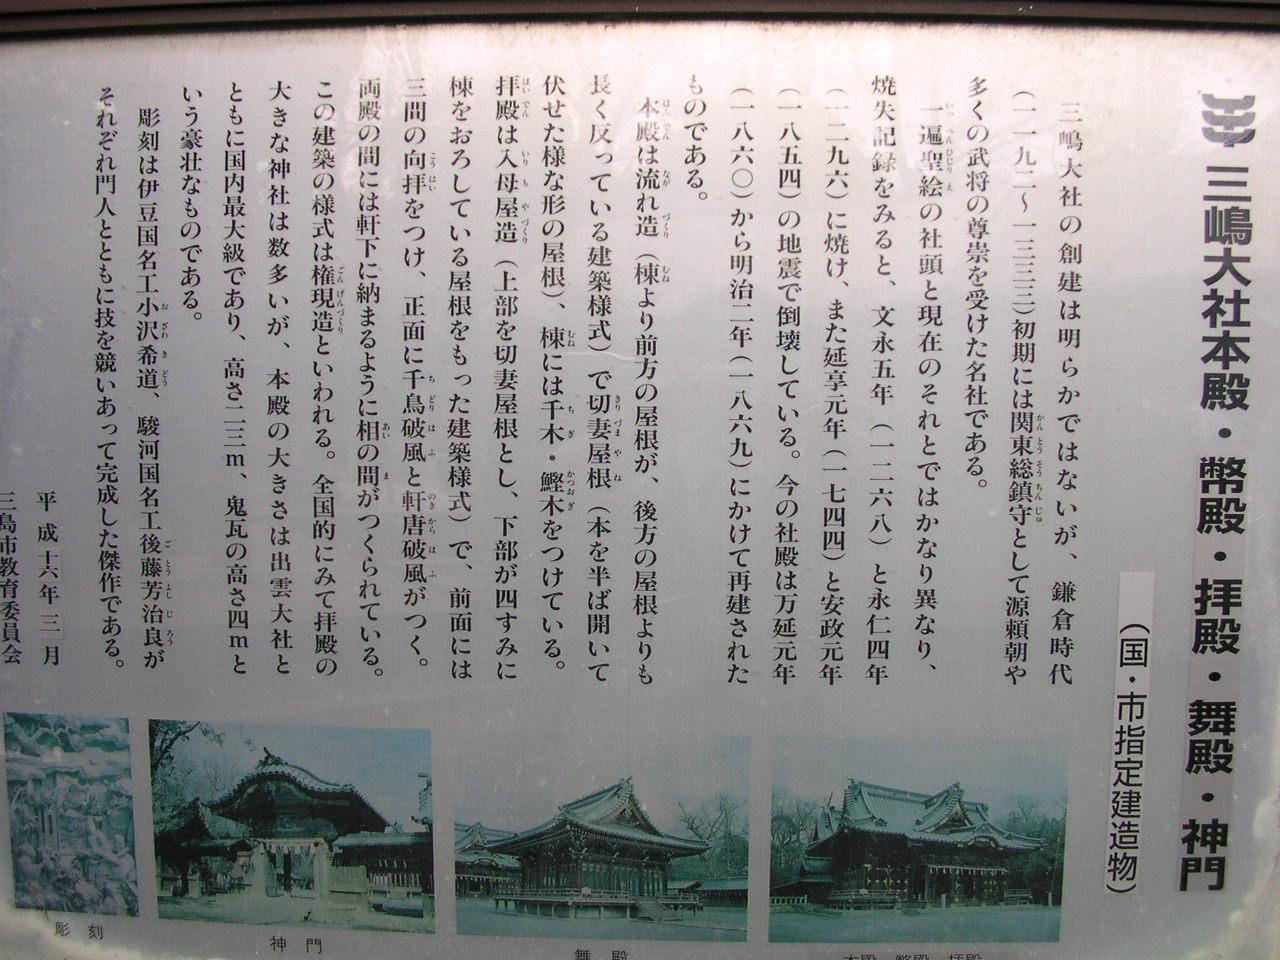 三嶋大社本殿・幣殿・拝殿・舞殿・神門
（国・市指定建造物）
三嶋大社の創建は明らかではないが、鎌倉時代
（一一九二～一三三三）初期には関東総鎮守として源頼朝や
多くの武将の尊崇を受けた名社である。
一遍聖絵の社頭と現在のそれとではかなり異なり、
焼失記録をみると、文永五年（一二六八）と永仁四年
（一二九六）に焼け、また延享元年（一七四四）と安政元年
（一八五四）の地震で倒壊している。今の社殿は万延元年
（一八六〇）から明治二年（一八六九）にかけて再建された
ものである。
本殿は流れ造（棟より前方の屋根が、後方の屋根よりも
長く反っている建築様式）で切妻屋根（本を半ば開いて
伏せた様な形の屋根）、棟には千木・鰹木をつけている。
拝殿は入母屋造（上部を切妻屋根とし、下部が四すみに
棟をおろしている屋根をもった建築様式）で、前面には
三間の向拝をつけ、正面に千鳥破風と軒唐破風がつく。
両殿の間には軒下に納まるように相の間がつくられている。
この建築の様式は権現造といわれる。全国的にみて拝殿の
大きな神社は数多いが、本殿の大きさは出雲大社と
ともに国内最大級であり、高さ二三m、鬼瓦の高さ四mと
いう豪壮なものである。
彫刻は伊豆国名工小沢希道、駿河国名工後藤芳治良が
それぞれ門人とともに技を競いあって完成した傑作である。
平成十六年三月
三島市教育委員会
彫刻
神門
舞殿
本殿 幣殿 拝殿